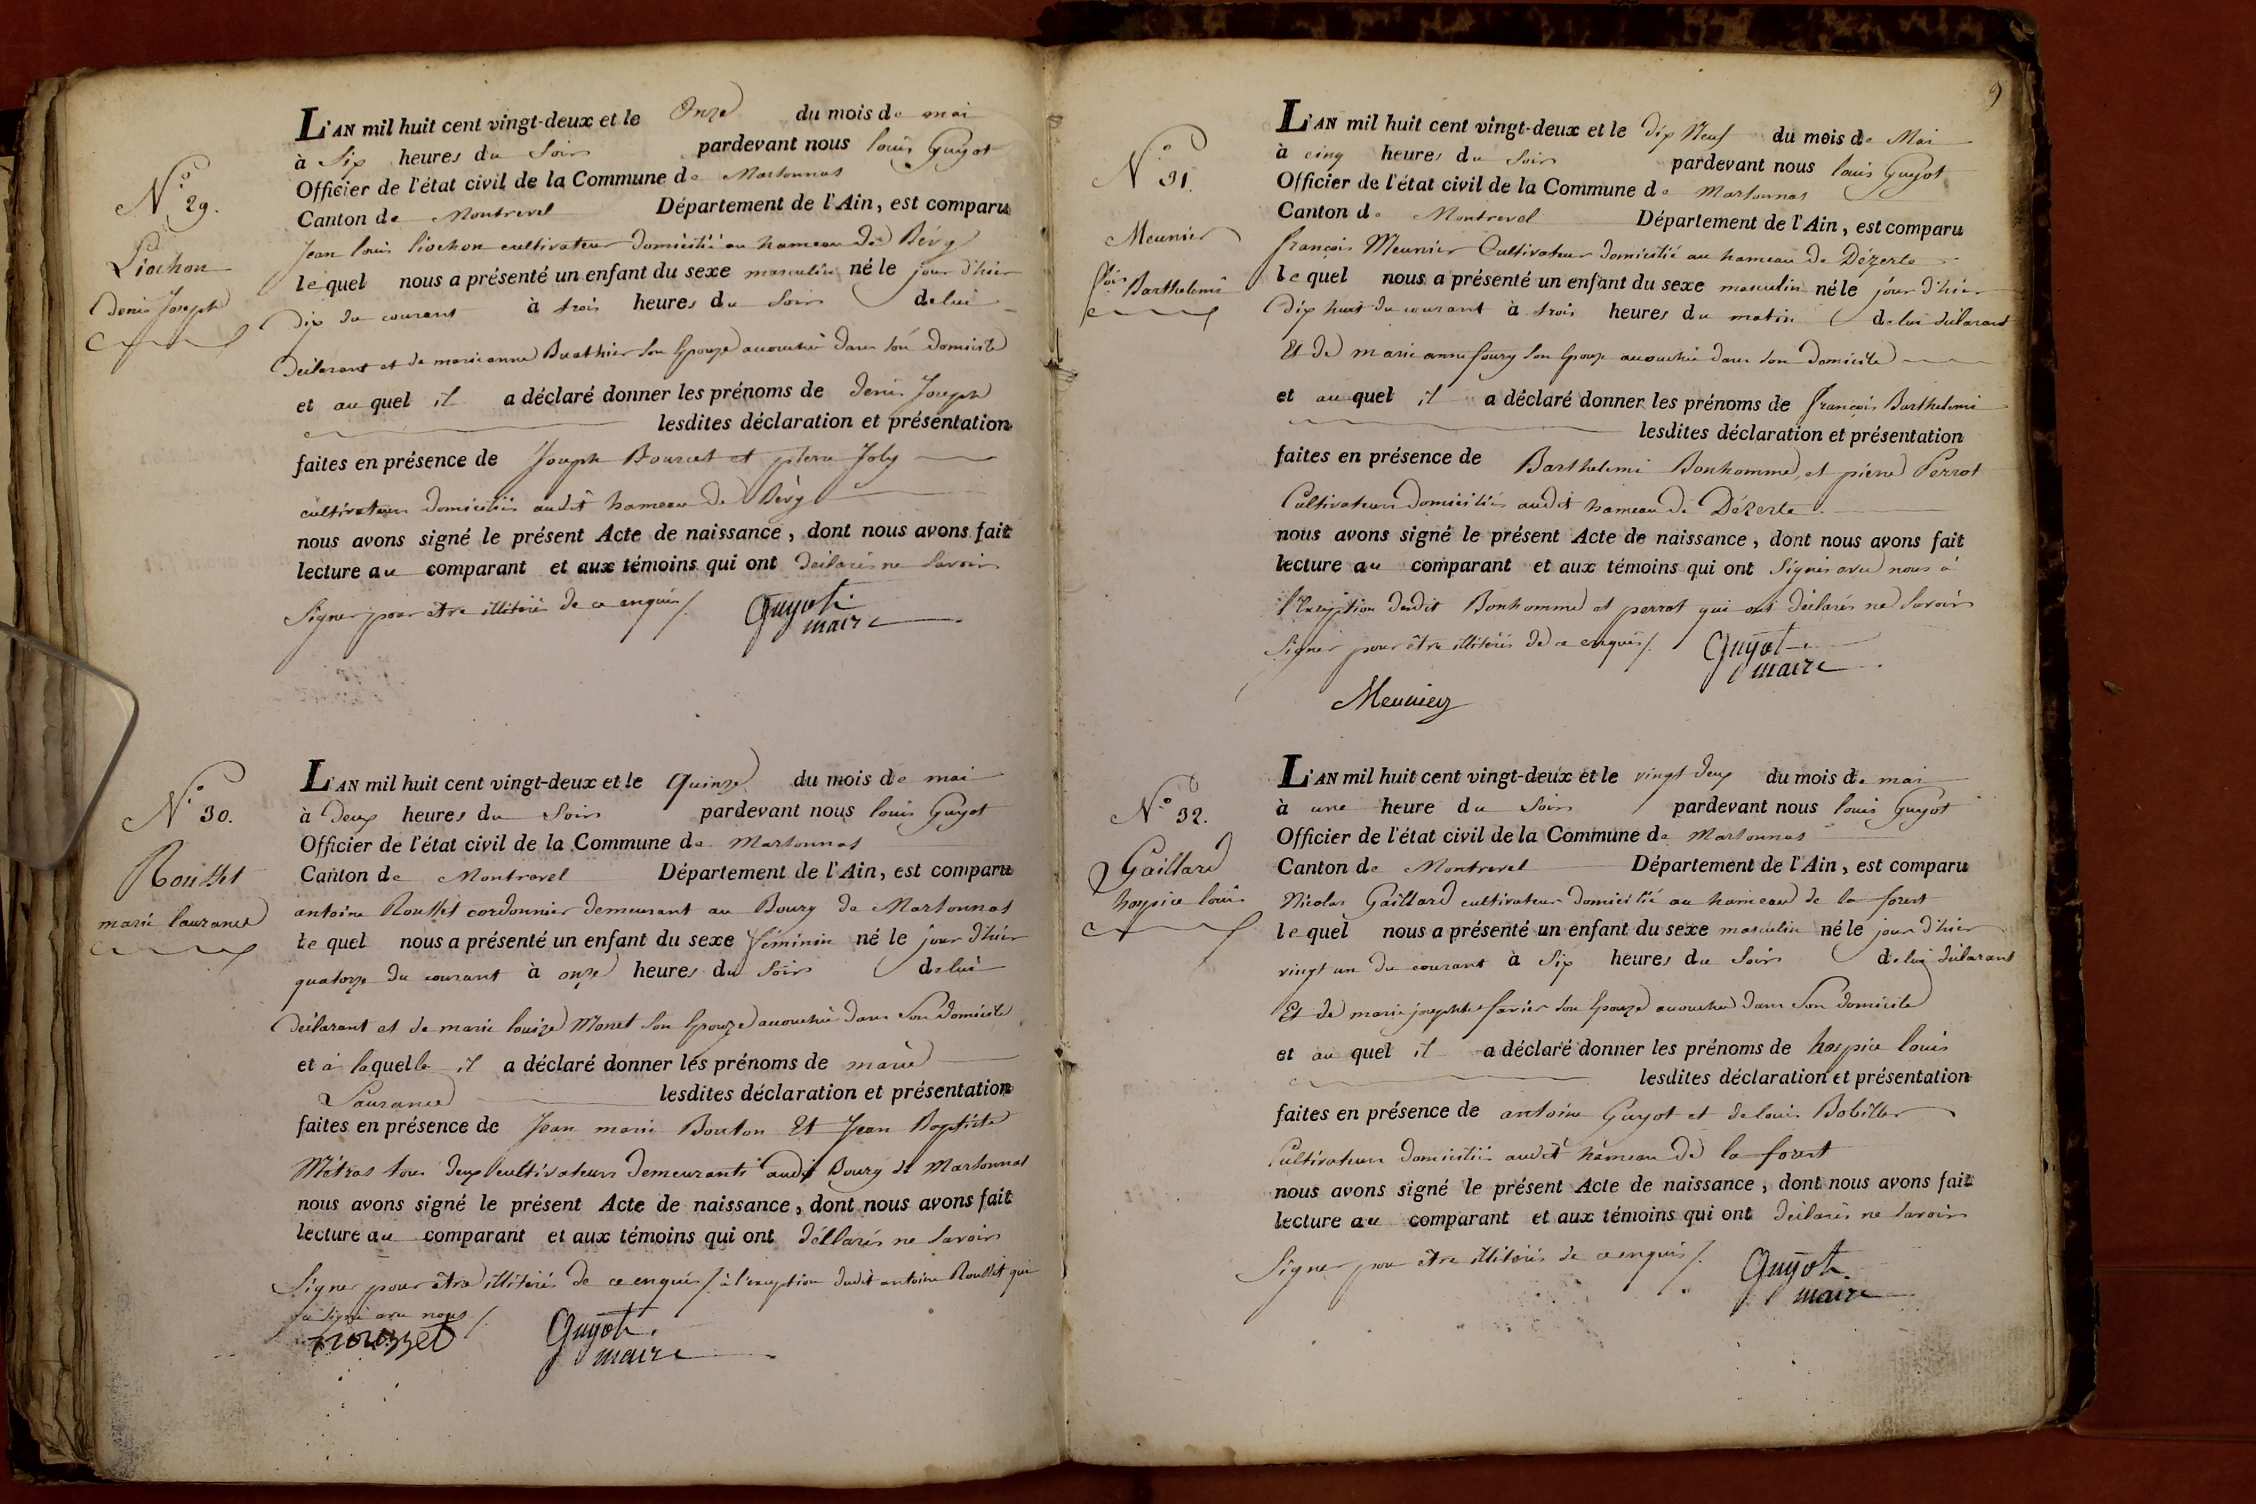 N.° 29.
Liochon
Denis Joseph
L'AN mil huit cent vingt-deux et le Onze du mois de mai
à Six heures du Soir pardevant nous louis Guyot
Officier de l'état civil de la Commune de Marsonnas
Canton de Montrevel Département de l'Ain, est comparu
Jean louis liochon cultivateur domicilié au hameau de Bévy
lequel nous a présenté un enfant du sexe masculin né le jour d'hier
dix du courant à trois heures du Soir de lui
déclarant et de marieanne Buathier son Epouze accouchée dans son domicile
et au quel il a déclaré donner les prénoms de denis Joseph
lesdites déclaration et présentation
faites en présence de Joseph Bourcet et pierre Joly
cultivateurs domiciliés audit hameau de Bévy
nous avons signé le présent Acte de naissance, dont nous avons fait
lecture au comparant et aux témoins qui ont déclarés ne Savoir
Signer pour être illitérés de ce enquis /.
Guyot
maire
N.° 30.
Rousset
marie laurance
L'AN mil huit cent vingt-deux et le Quinze du mois de mai
à Deux heures du Soir pardevant nous louis Guyot
Officier de l'état civil de la Commune de Marsonnas
Canton de Montrevel Département de l'Ain, est comparu
antoine Rousset cordonnier demeurant au Bourg de Marsonnas
le quel nous a présenté un enfant du sexe féminin né le jour d'hier
quatorze du courant à onze heures du Soir de lui
déclarant et de marie louize Monet son Epouze accouchée dans Son domicile
et à laquelle il a déclaré donner les prénoms de marie
Laurance lesdites déclaration et présentation
faites en présence de Jean marie Bouton Et Jean Baptiste
Métras tous deux cultivateurs demeurants audit Bourg de Marsonnas
nous avons signé le présent Acte de naissance, dont nous avons fait
lecture au comparant et aux témoins qui ont déclarés ne Savoir
Signer pour être illitérés de ce enquis /. à l'exception dudit antoine Rousset qui
a signé avec nous /.
rousset
Guyot
maire
9
N.° 31.
Meunier
f.ois Barthelemi
L'AN mil huit cent vingt-deux et le dix Neuf du mois de Mai
à cinq heures du Soir pardevant nous louis Guyot
Officier de l'état civil de la Commune de Marsonnas
Canton de Montrevel Département de l'Ain, est comparu
françois Meunier Cultivateur domicilié au hameau de Dézerte
lequel nous a présenté un enfant du sexe masculin né le jour d'hier
dix huit du courant à trois heures du matin de lui déclarant
Et de marie anne foury son Epouze accouchée dans son domicile
et au quel il a déclaré donner les prénoms de françois Barthelemi
lesdites déclaration et présentation
faites en présence de Barthelemi Bonhomme, et pierre Perrot
Cultivateurs domiciliés audit hameau de Dézerte
nous avons signé le présent Acte de naissance, dont nous avons fait
lecture au comparant et aux témoins qui ont Signés avec nous à
l'Exception dudit Bonhomme et perrot qui ont déclarés ne Savoir
Signer pour être illitérés de ce enquis /.
Guyot
maire
Meunier
N.° 32.
Gaillard
hospice louis
L'AN mil huit cent vingt-deux et le vingt deux du mois de mai
à une heure du Soir pardevant nous louis Guyot
Officier de l'état civil de la Commune de Marsonnas
Canton de Montrevel Département de l'Ain, est comparu
Nicolas Gaillard cultivateur domicilié au hameau de la forest
lequel nous a présenté un enfant du sexe masculin né le jour d'hier
vingt un du courant à Six heures du Soir de lui déclarant
Et de marie josephte favier son Epouze accouchée dans Son domicile
et au quel il a déclaré donner les prénoms de hospice louis
lesdites déclaration et présentation
faites en présence de antoine Guyot et de louis Bobiller
Cultivateurs domiciliés audit hameau de la forest
nous avons signé le présent Acte de naissance, dont nous avons fait
lecture au comparant et aux témoins qui ont déclarés ne Savoir
Signer pour être illitérés de ce enquis /.
Guyot
maire